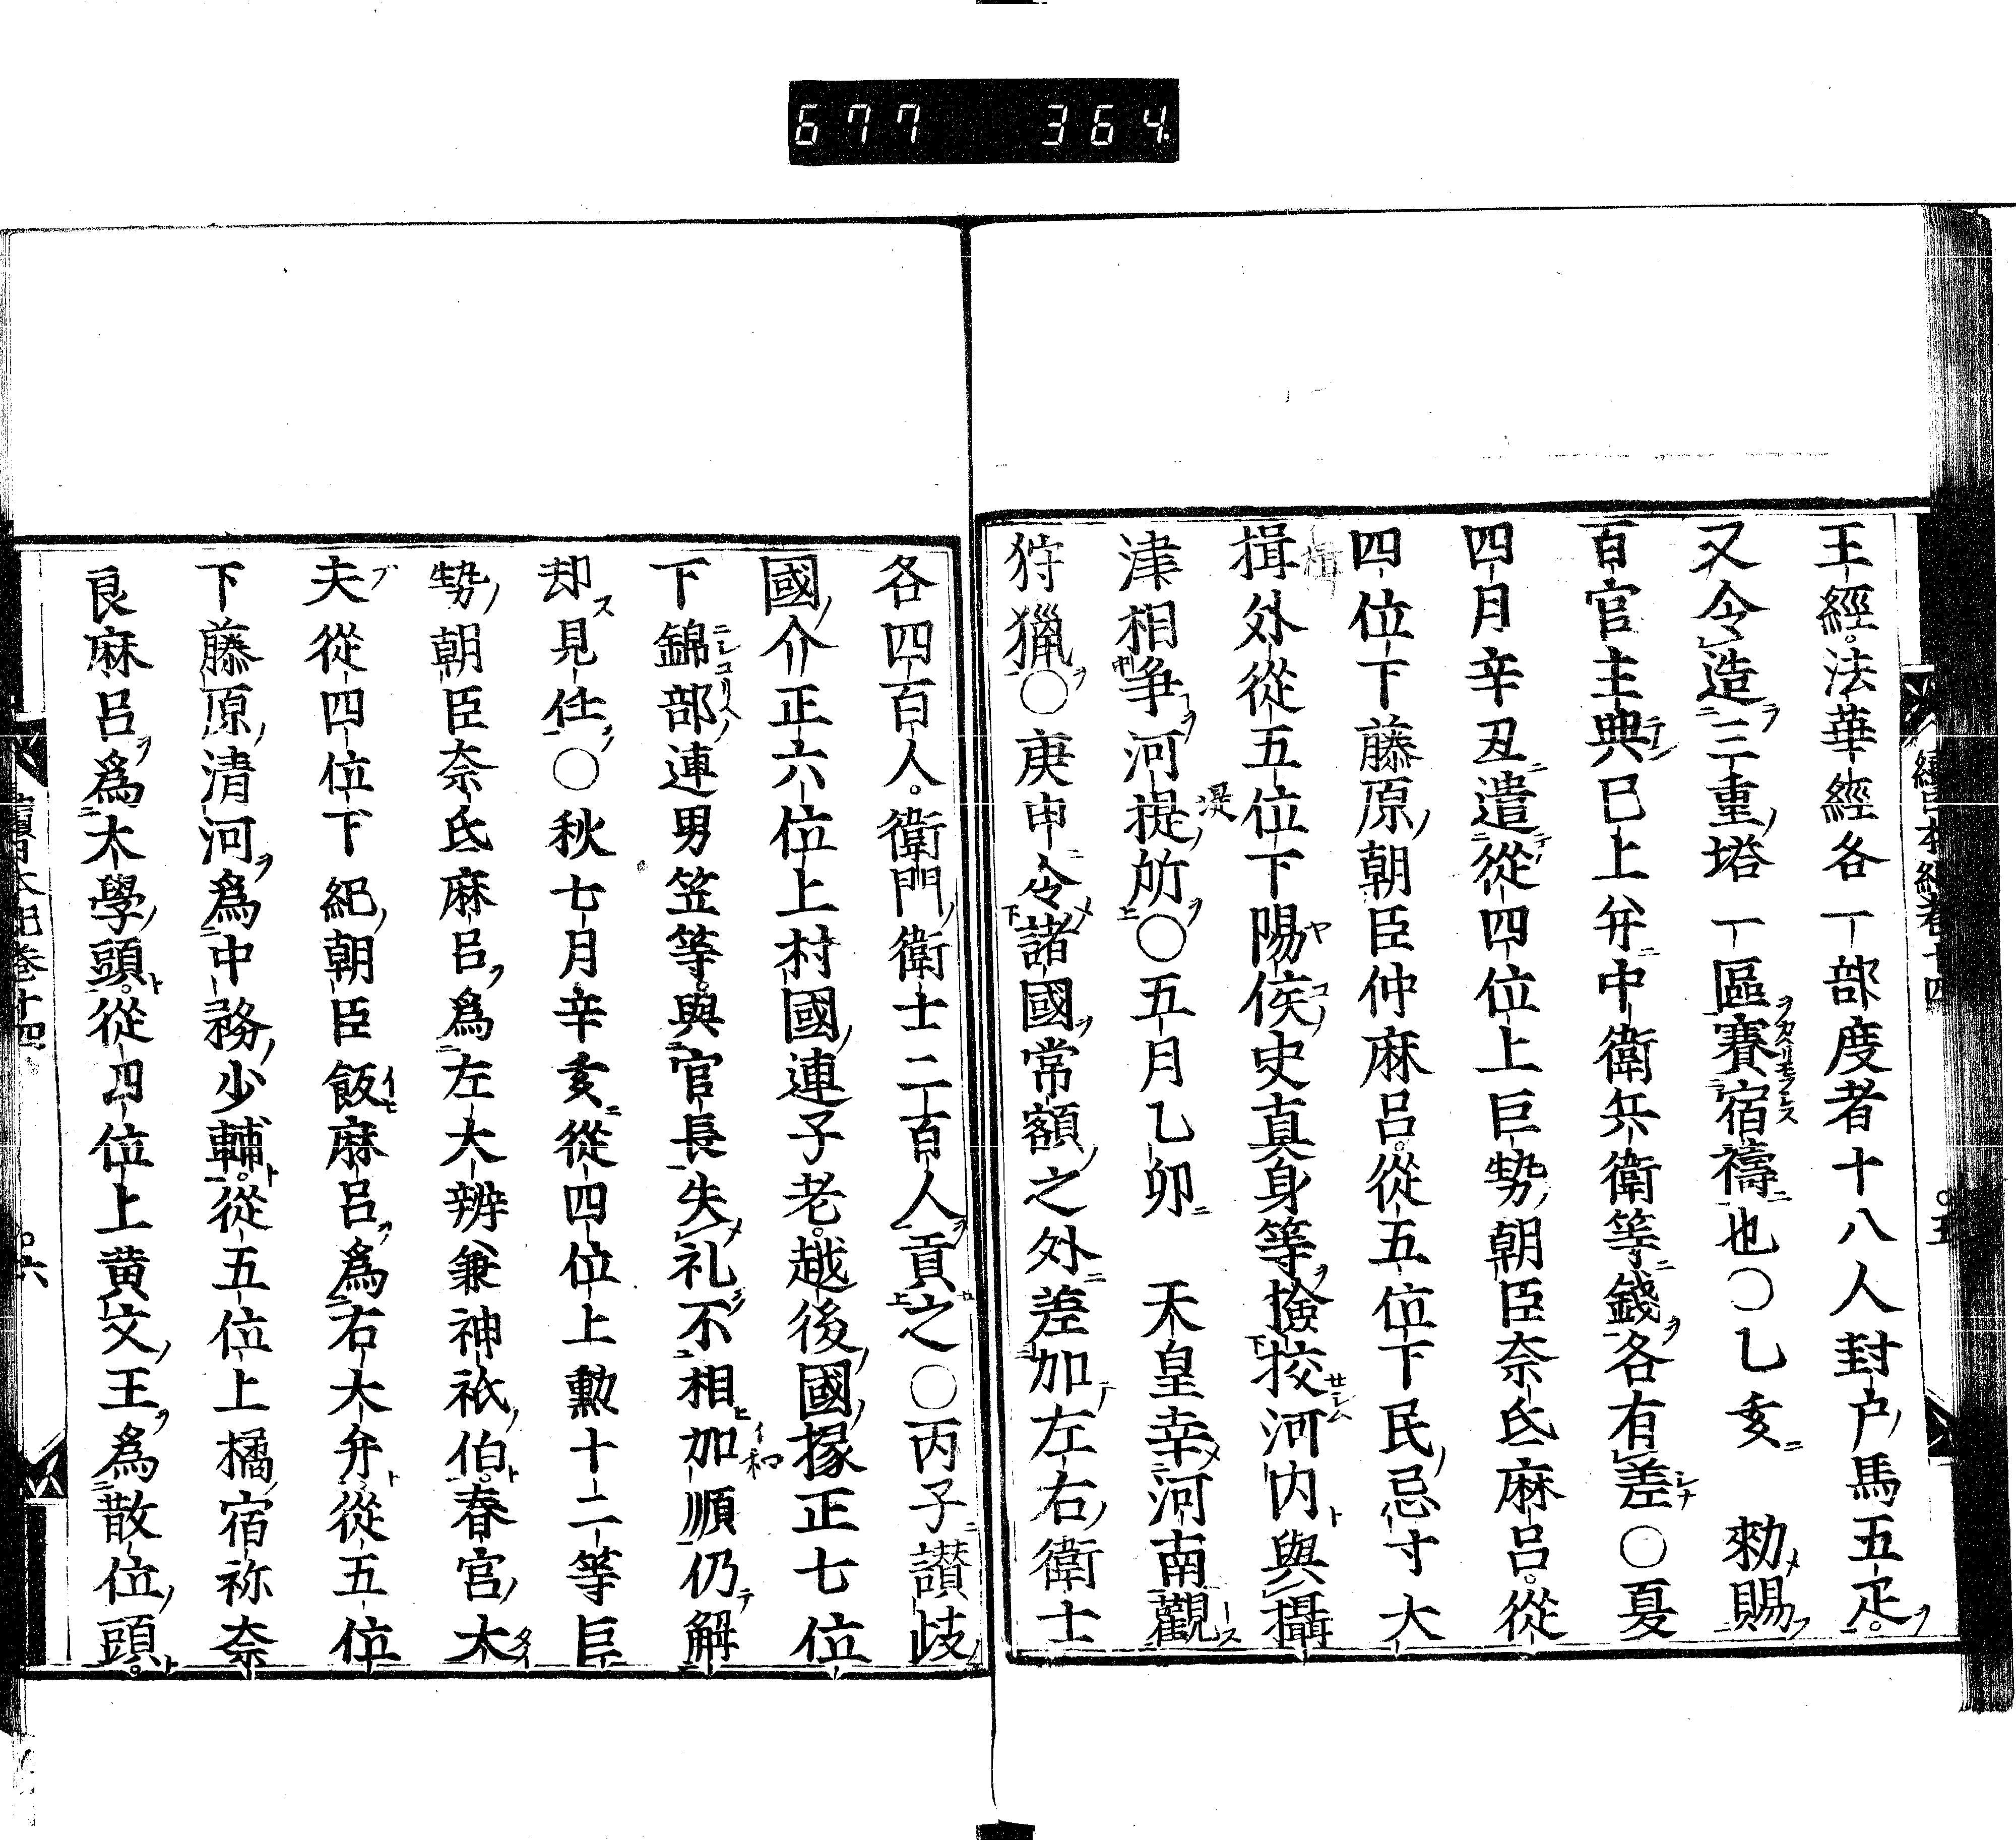 677 364
王經法華經各一部度者十八人封戸馬五疋
又令造三重塔一區賽宿禱也〇乙亥 勑賜
百官主典已上并中衛兵衛等錢各有差〇夏
四月辛丑遣從四位上巨勢朝臣奈氐麻呂從
四位下藤原朝臣仲麻呂從五位下民忌寸大
揖外從五位下陽侯史真身等撿挍河内與攝
津相爭河提所〇五月乙卯 天皇幸河南觀
狩獵〇庚申令諸國常額之外差加左右衛士
各四百人衛門衛士二百人貢之〇丙子讃岐
國介正六位上村國連子老越後國掾正七位
下錦部連男笠等與官長失礼不相加順仍解
却見任〇秋七月辛亥從四位上勳十二等巨
勢朝臣奈氐麻呂爲左大辨兼神祇伯春宮大
夫從四位下紀朝臣飯麻呂爲右大弁從五位
下藤原清河爲中務少輔從五位上橘宿祢奈
良麻呂爲大學頭從四位上黄文王爲散位頭
續日本紀巻十四 六